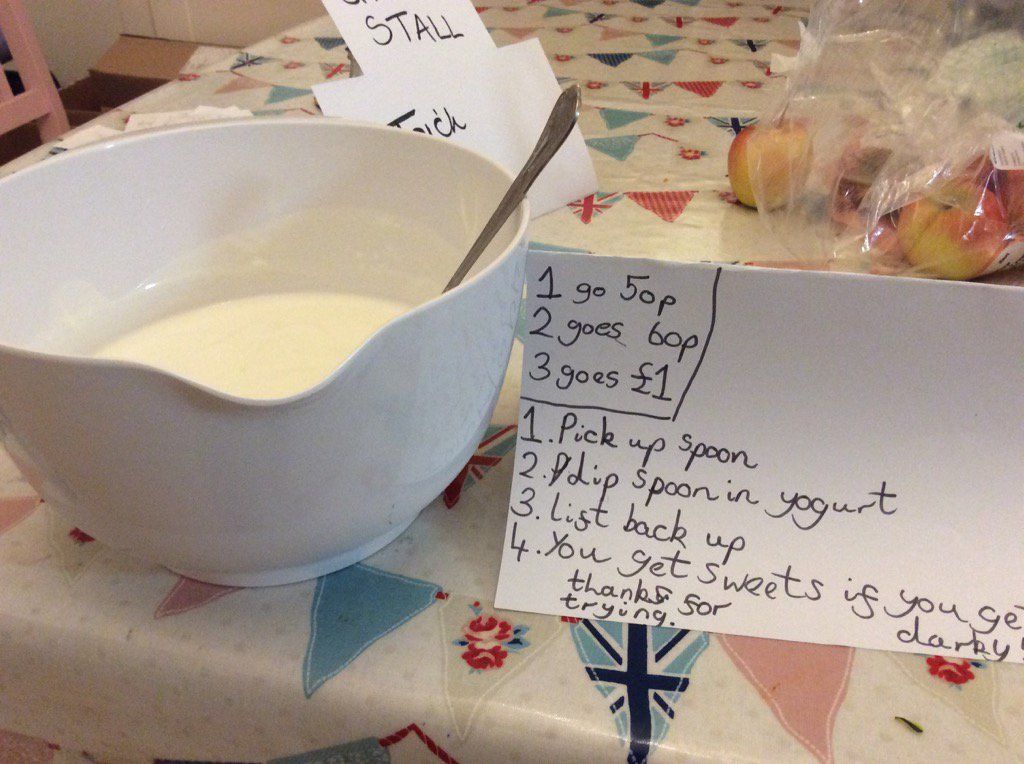 STALL
Trick
1 go 50p
2 goes 60p
3 goes £1
1. Pick up spoon
2. dip spoon in yogurt
3. lift back up
4. You get sweets if you ge
thanks for
trying.